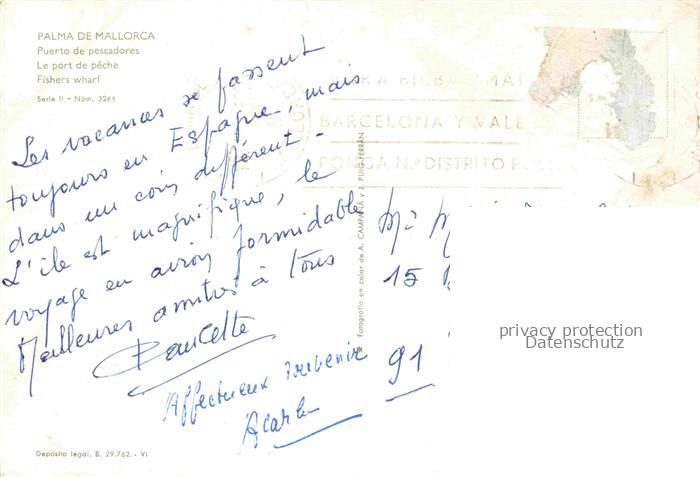 PALMA DE MALLORCA
Puerto de pescadores
Le port de pêche
Fishers wharf
Serie II - Núm. 3266
Les vacances se passent
toujours en Espagne, mais
dans un coin différent.
L'île est magnifique, le
voyage en avion formidable
Meilleures amitiés à tous
Affectueux souvenir
BILBAO
BARCELONA Y VALE
PONGA N.º DISTRITO P
Fotografía en color de A. CAMPAÑÁ y J. PUIG-FERRÁN
15
91
privacy protection
Datenschutz
Depósito legal. B. 29.762. - VI